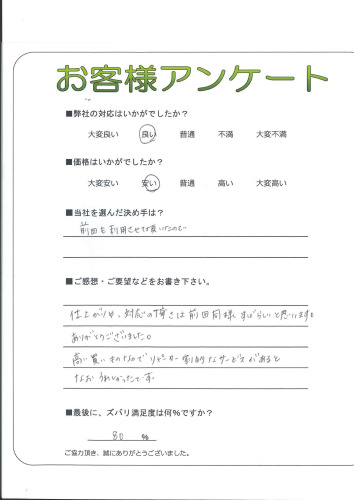 お客様アンケート
■弊社の対応はいかがでしたか？
大変良い　良い　普通　不満　大変不満
■価格はいかがでしたか？
大変安い　安い　普通　高い　大変高い
■当社を選んだ決め手は？
前回も利用させて頂いたので
■ご感想・ご要望などをお書き下さい。
仕上がりや、対応の早さは前回同様すばらしいと思います。
ありがとうございました。
高い買いものなのでリピーター割的なサービスがあると
なおうれしかったです。
■最後に、ズバリ満足度は何％ですか？
80 ％
ご協力頂き、誠にありがとうございました。